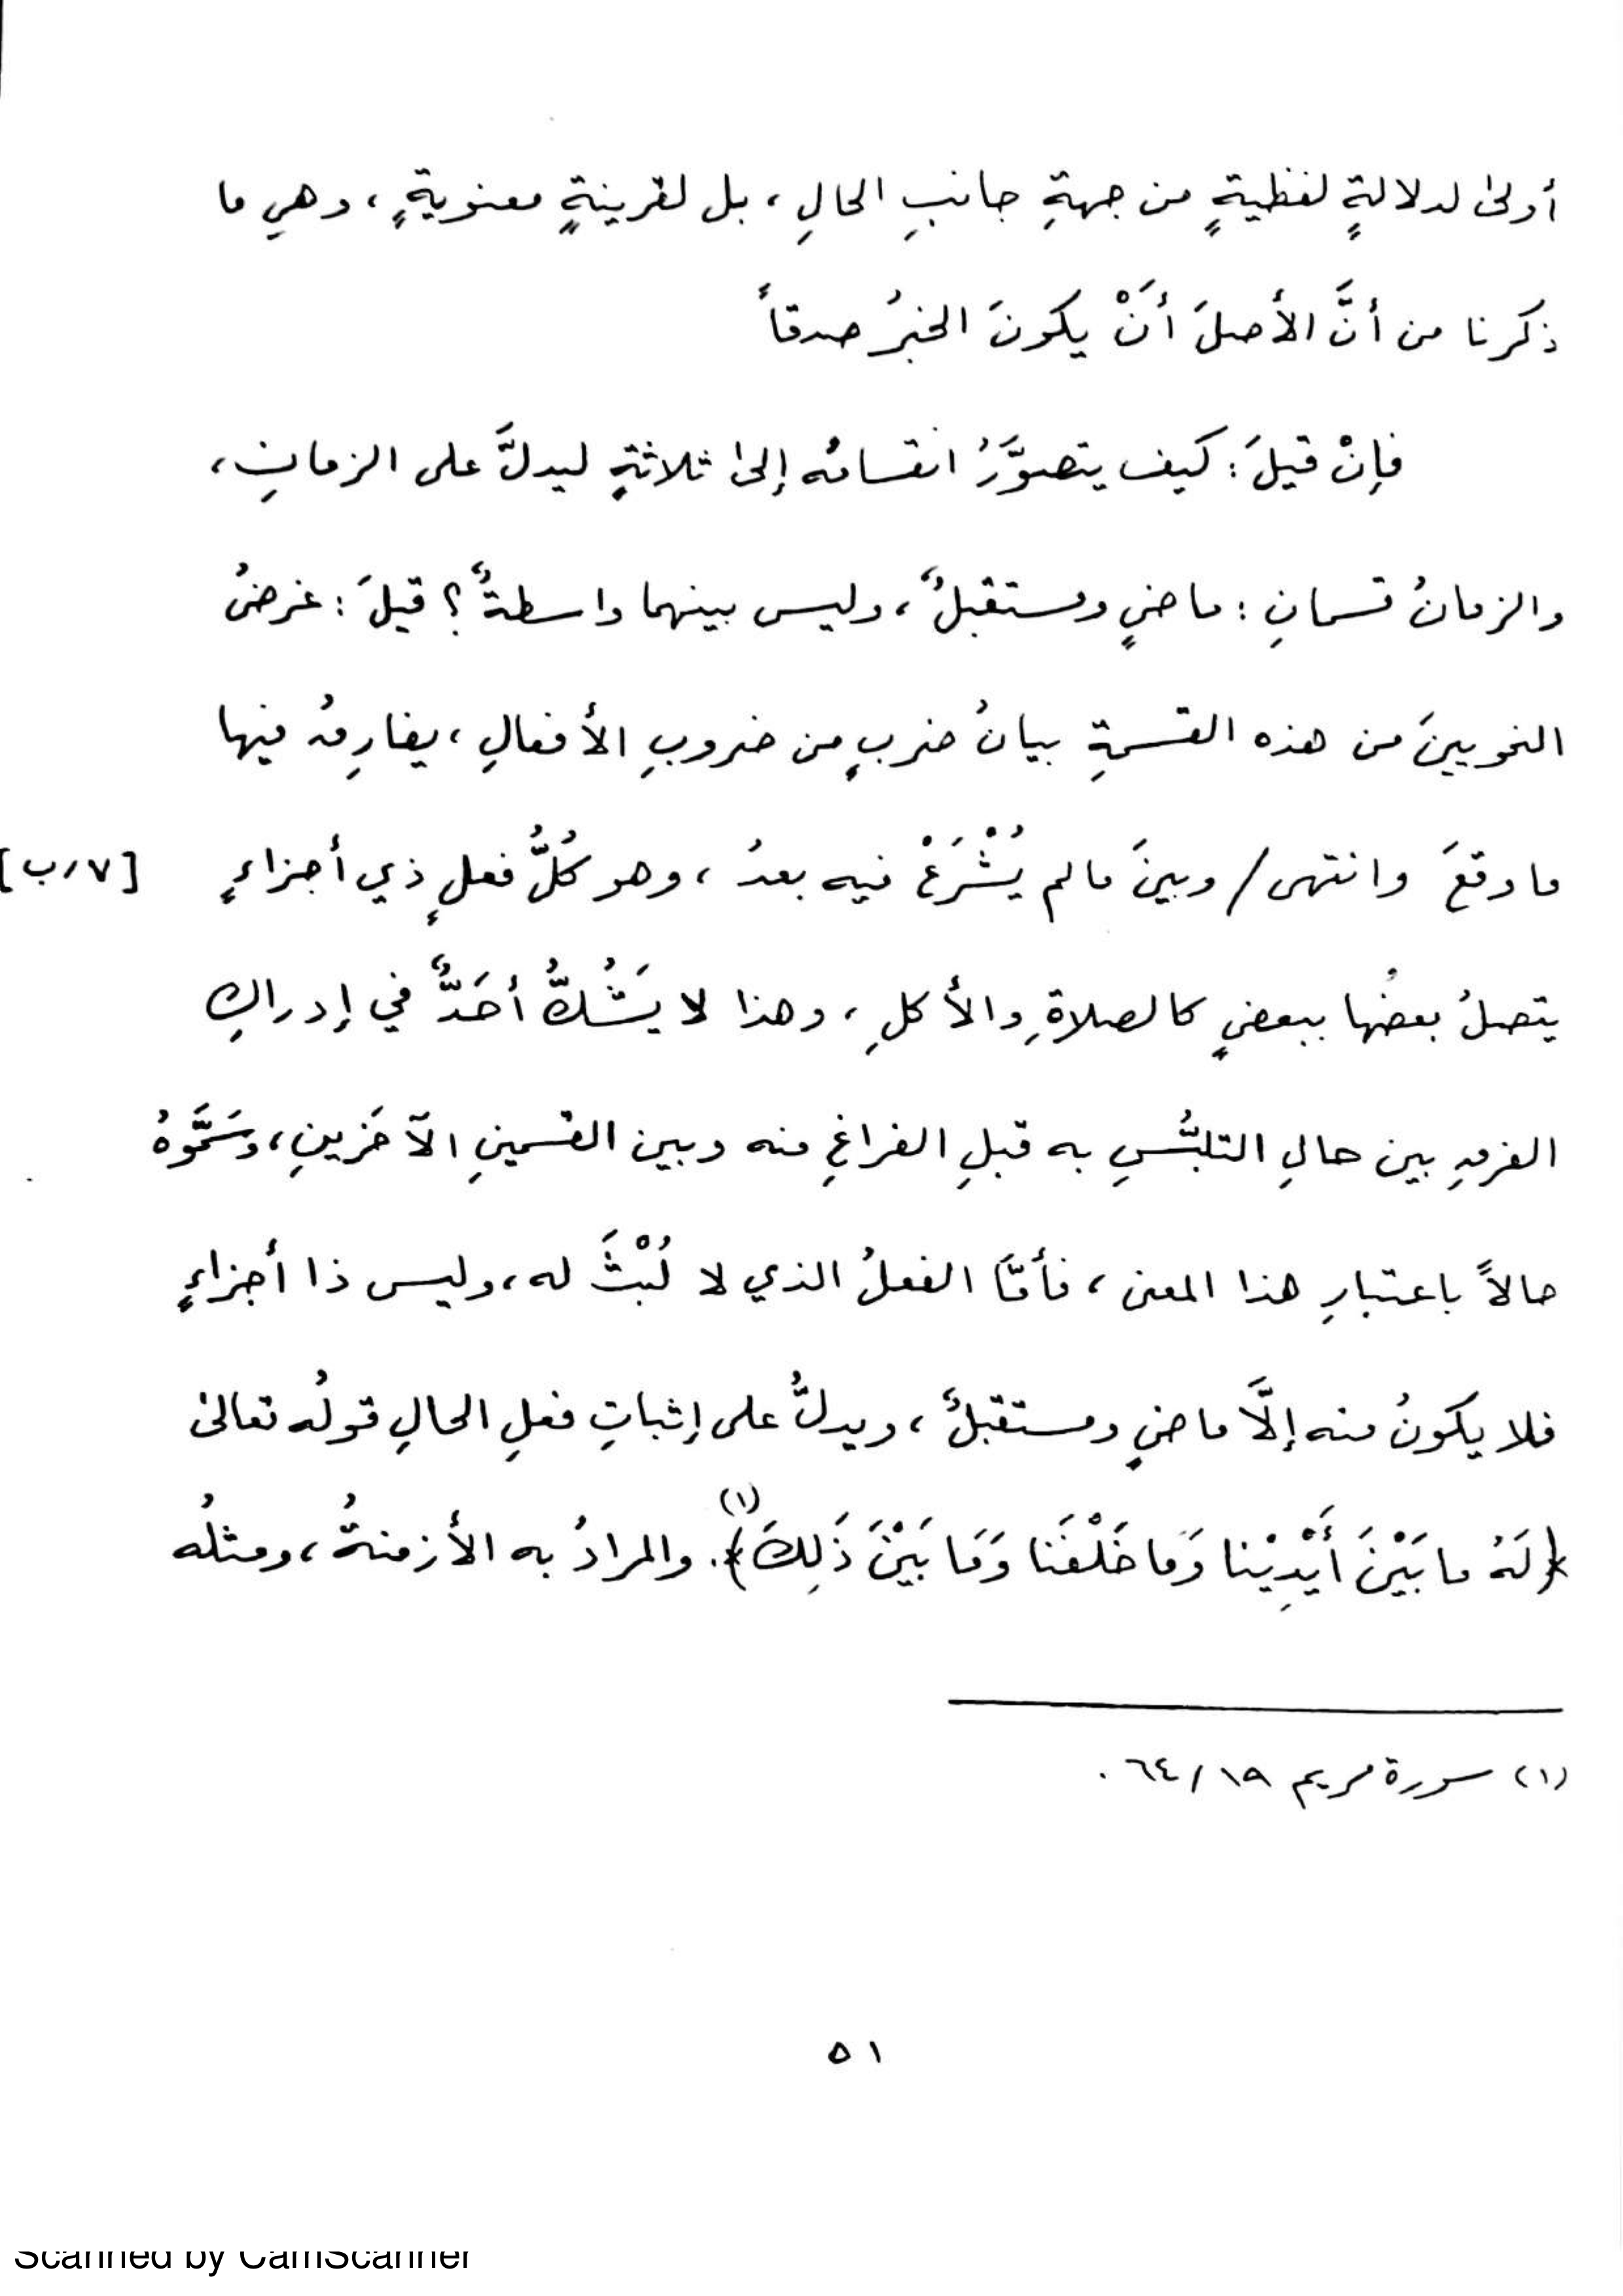 أولىٰ لدلالةٍ لفظيةٍ من جهةِ جانبِ الحالِ ، بل لقرينةٍ معنويةٍ ، وهي ما
ذكرنا من أنَّ الأصلَ أنْ يكونَ الخبرُ صدقاً
فإنْ قيلَ : كيف يتصوَّرُ انقسامُه إلىٰ ثلاثةٍ ليدلَّ على الزمانِ ،
والزمانُ قسمانِ : ماضٍ ومستقبلٌ ، وليس بينهما واسطةٌ ؟ قيلَ : غرضُ
النحويينَ من هذه القسمةِ بيانُ ضربٍ من ضروبِ الأفعالِ ، يفارِقُ فيها
ما وقعَ وانتهى / وبينَ مالم يُشْرَعْ فيه بعدُ ، وهو كُلُّ فعلٍ ذي أجزاءٍ [٧/ب]
يتصلُ بعضُها ببعضٍ كالصلاةِ والأكلِ ، وهذا لا يَشُكُّ أحَدٌ في إدراكِ
الفرقِ بين حالِ التلبُّسِ به قبلِ الفراغِ منه وبين القسمينِ الآخَرينِ ، وسَمَّوهُ
حالاً باعتبارِ هذا المعنى ، فأمَّا الفعلُ الذي لا لُبْثَ له ، وليس ذا أجزاءٍ
فلا يكونُ منه إلَّا ماضٍ ومستقبلٌ ، ويدلُّ على إثباتِ فعلِ الحالِ قولُه تعالىٰ
﴿لَهُ ما بَيْنَ أَيْدِيْنا وَما خَلْفَنا وَمَا بَيْنَ ذَلِكَ﴾(١). والمرادُ به الأزمنةُ ، ومثلُه
(١) سورة مريم ١٩ / ٦٤ .
٥١
Scanned by CamScanner